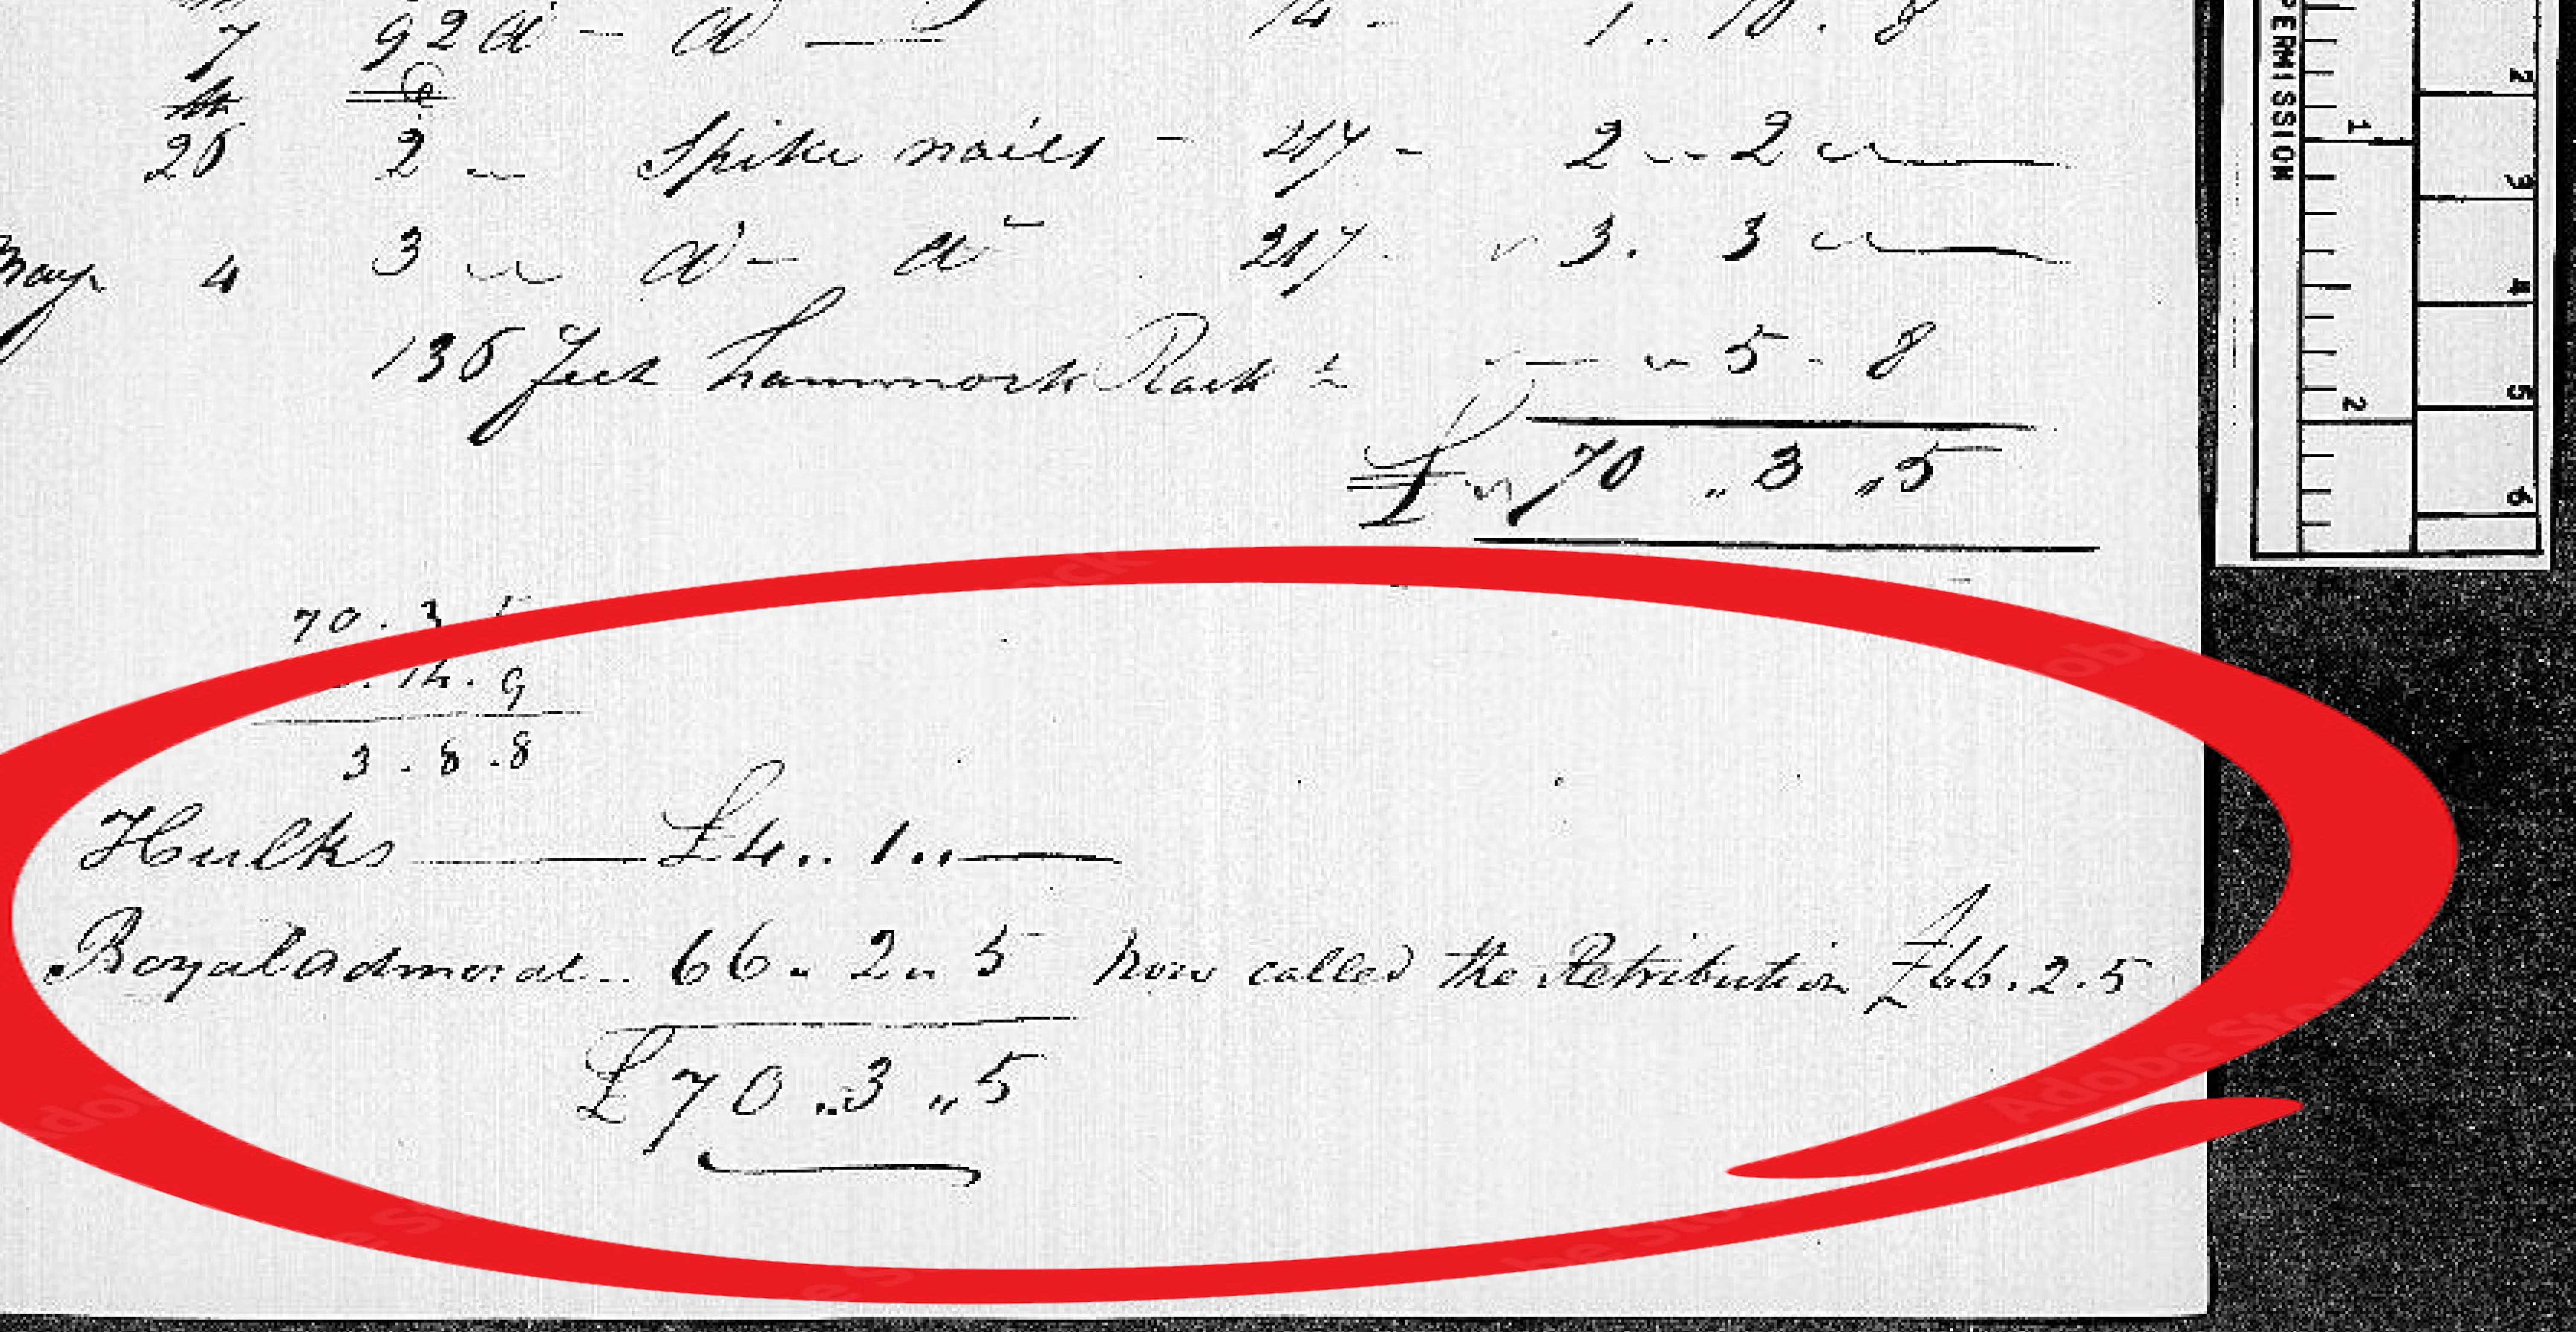 7 92 do - do — 14 - 1 .. 10 . 8
26 2 " Spike nails - 21/7 - 2 " 2 "
May 4 3 " do - do 21/7 - " 3 . 3 "
136 feet hammock Rack ½ - " 5 - 8
£ " 70 .. 3 .. 5
70 . 3 . 5
14 . 9
3 . 8 . 8
Hulks £4 .. 1 .. —
Royal Admoral .. 66 .. 2 .. 5 now called the Retribution £66 . 2 . 5
£70 .. 3 .. 5
PERMISSION
1 2
2 3 4 5 6